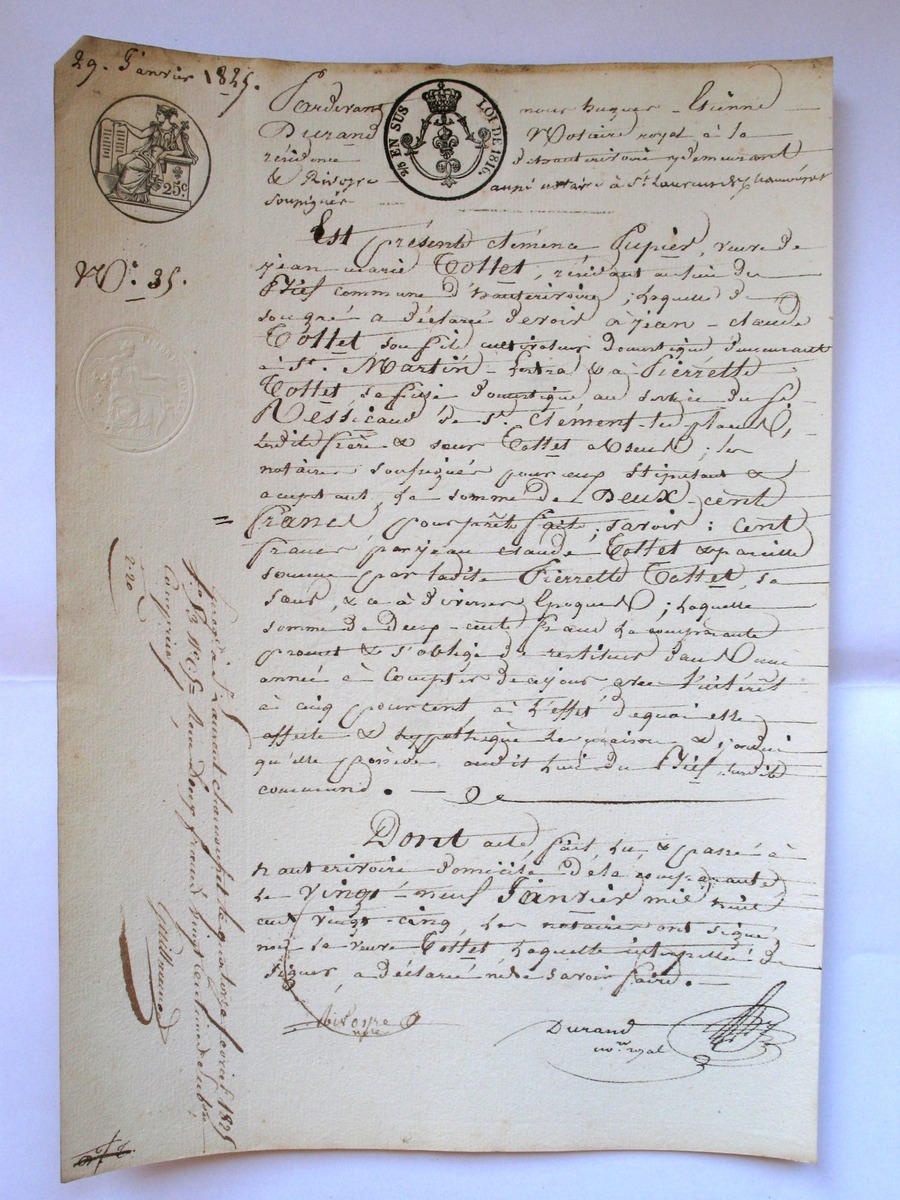 29. Janvier 1825.
25c.
25 EN SUS LOI DE 1816.
N°. 35.
Pardevant nous hugues - Etienne
Durand Notaire royal à la
résidence d'hauterivoire y demeurant
& Rivoyre aussi notaire à St. Laurent de Chamousset
soussignés
Est présente clémence Pupier, veuve de
jean marie Tottet, résidant au lieu du
Fief commune d'hauterivoire ; laquelle de
son gré a déclaré devoir à jean - claude
Tottet son fils cultivateur domestique demeurant
à St. Martin - Lestra & à Pierrette
Tottet, sa fille domestique au service du Sr.
Ressicaud de St. Clément - les places,
lesdits frère & sœur Tottet absents ; les
notaires soussignés pour eux stipulant &
acceptant, la somme de Deux - cent
francs, pour prêts faits, savoir : cent
francs par jean claude Tottet & pareille
somme par ladite Pierrette Tottet, sa
sœur, & ce à diverses époques ; laquelle
somme de deux - cents francs la comparante
promet & s'oblige de restituer dans une
année à compter de ce jour, avec l'intérêt
à cinq pour cent à l'effet de quoi elle
affecte & hyppothèque les maison &
qu'elle possède audit lieu du Fief susdite
commune. -
Dont acte fait, lu, & passé à
hauterivoire domicile de la comparante
le vingt - neuf Janvier mil huit
cent vingt - cinq, les notaires ont signé,
non la veuve Tottet laquelle interpellée de
signer, a déclaré ne le savoir faire. -
Rivoyre
nore
Durand
nore. royal
à St. Laurent chamousset le quatorze février 1825
deux francs vingt centimes
compris
2.20
Guilhermond